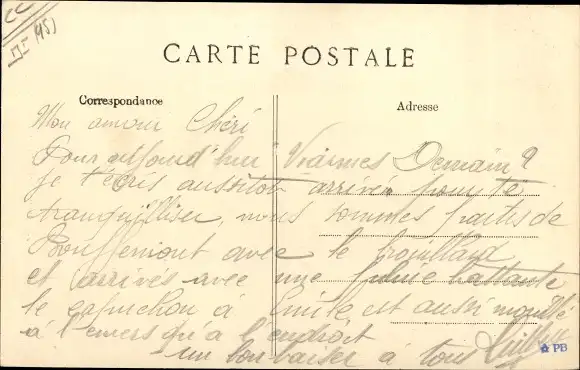 CARTE POSTALE
Correspondance
Adresse
Mon amour Chéri
Pour aujourd'hui Viarmes Demain ?
je t'écris aussitôt arrivée pour te
tranquilliser, nous sommes partis de
Bouffémont avec le brouillard
et arrivés avec une pluie battante
le capuchon à Emile est aussi mouillé
à l'envers qu'à l'endroit
un bon baiser à tous
PB